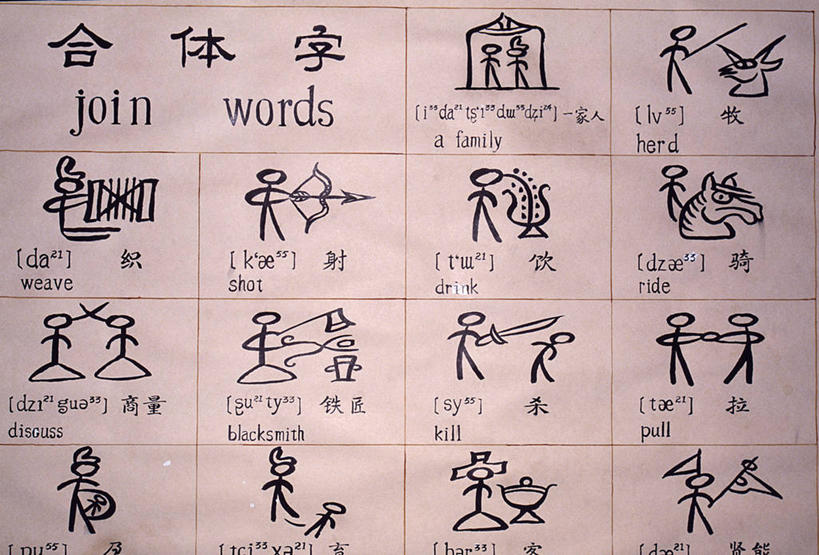 合体字
join words
[i³³da²¹tʂʻɿ³³dɯ³³dʑi²⁴]一家人
a family
[lv⁵⁵] 牧
herd
[da²¹] 织
weave
[kʻæ⁵⁵] 射
shot
[tʻɯ²¹] 饮
drink
[dzæ³³] 骑
ride
[dzɿ²¹guə³³] 商量
discuss
[ʂu²¹ty³³] 铁匠
blacksmith
[sy⁵⁵] 杀
kill
[tæ²¹] 拉
pull